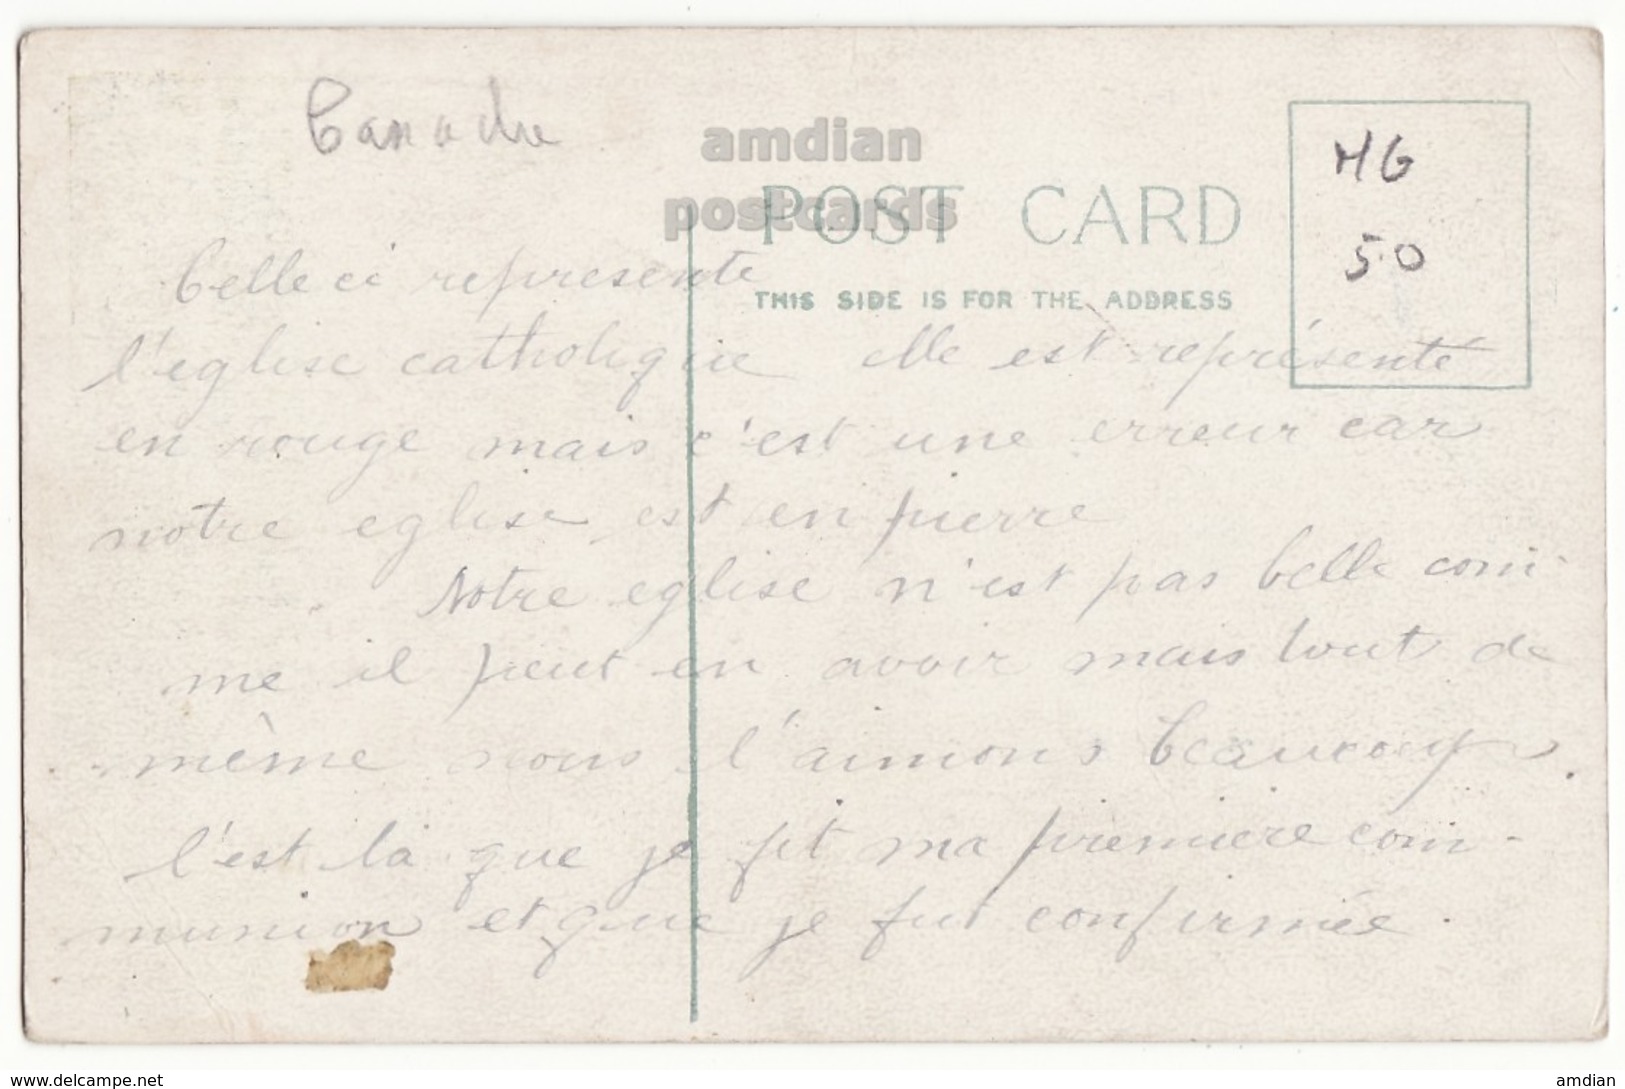 Canada
amdian
postcards
POST CARD
MG
50
THIS SIDE IS FOR THE ADDRESS
Celle ci represente
l'eglise catholique elle est représenté
en rouge mais c'est une erreur car
notre eglise est en pierre
Notre eglise n'est pas belle com-
me il peut en avoir mais tout de
même nous l'aimons beaucoup.
C'est là que je fit ma premiere com-
munion et que je fut confirmée.
www.delcampe.net
amdian